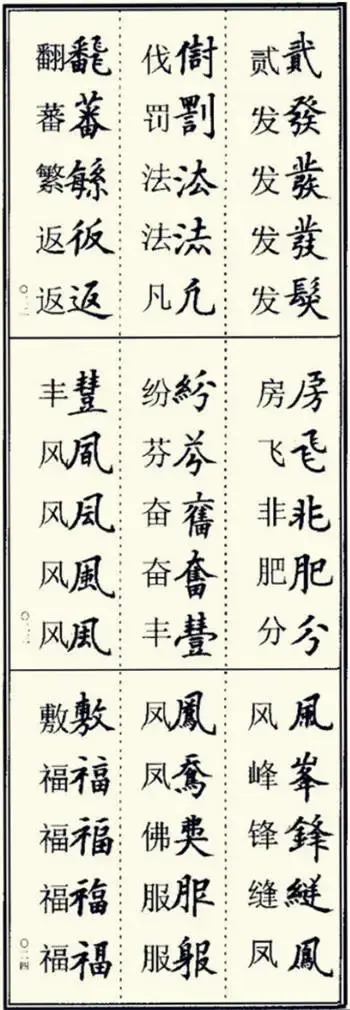 贰貳
发發
发
发發
发髮
伐
罚罰
法㳒
法
凡凢
翻飜
蕃蕃
繁緐
返仮
返返
房房
飞飛
非非
肥肥
分分
纷紛
芬芬
奋奮
奋奮
丰豐
丰豐
风
风凨
风風
风
〇二三
风風
峰峯
锋鋒
缝縫
凤鳳
凤鳳
凤
佛
服服
服
敷敷
福福
福福
福福
福福
〇二四